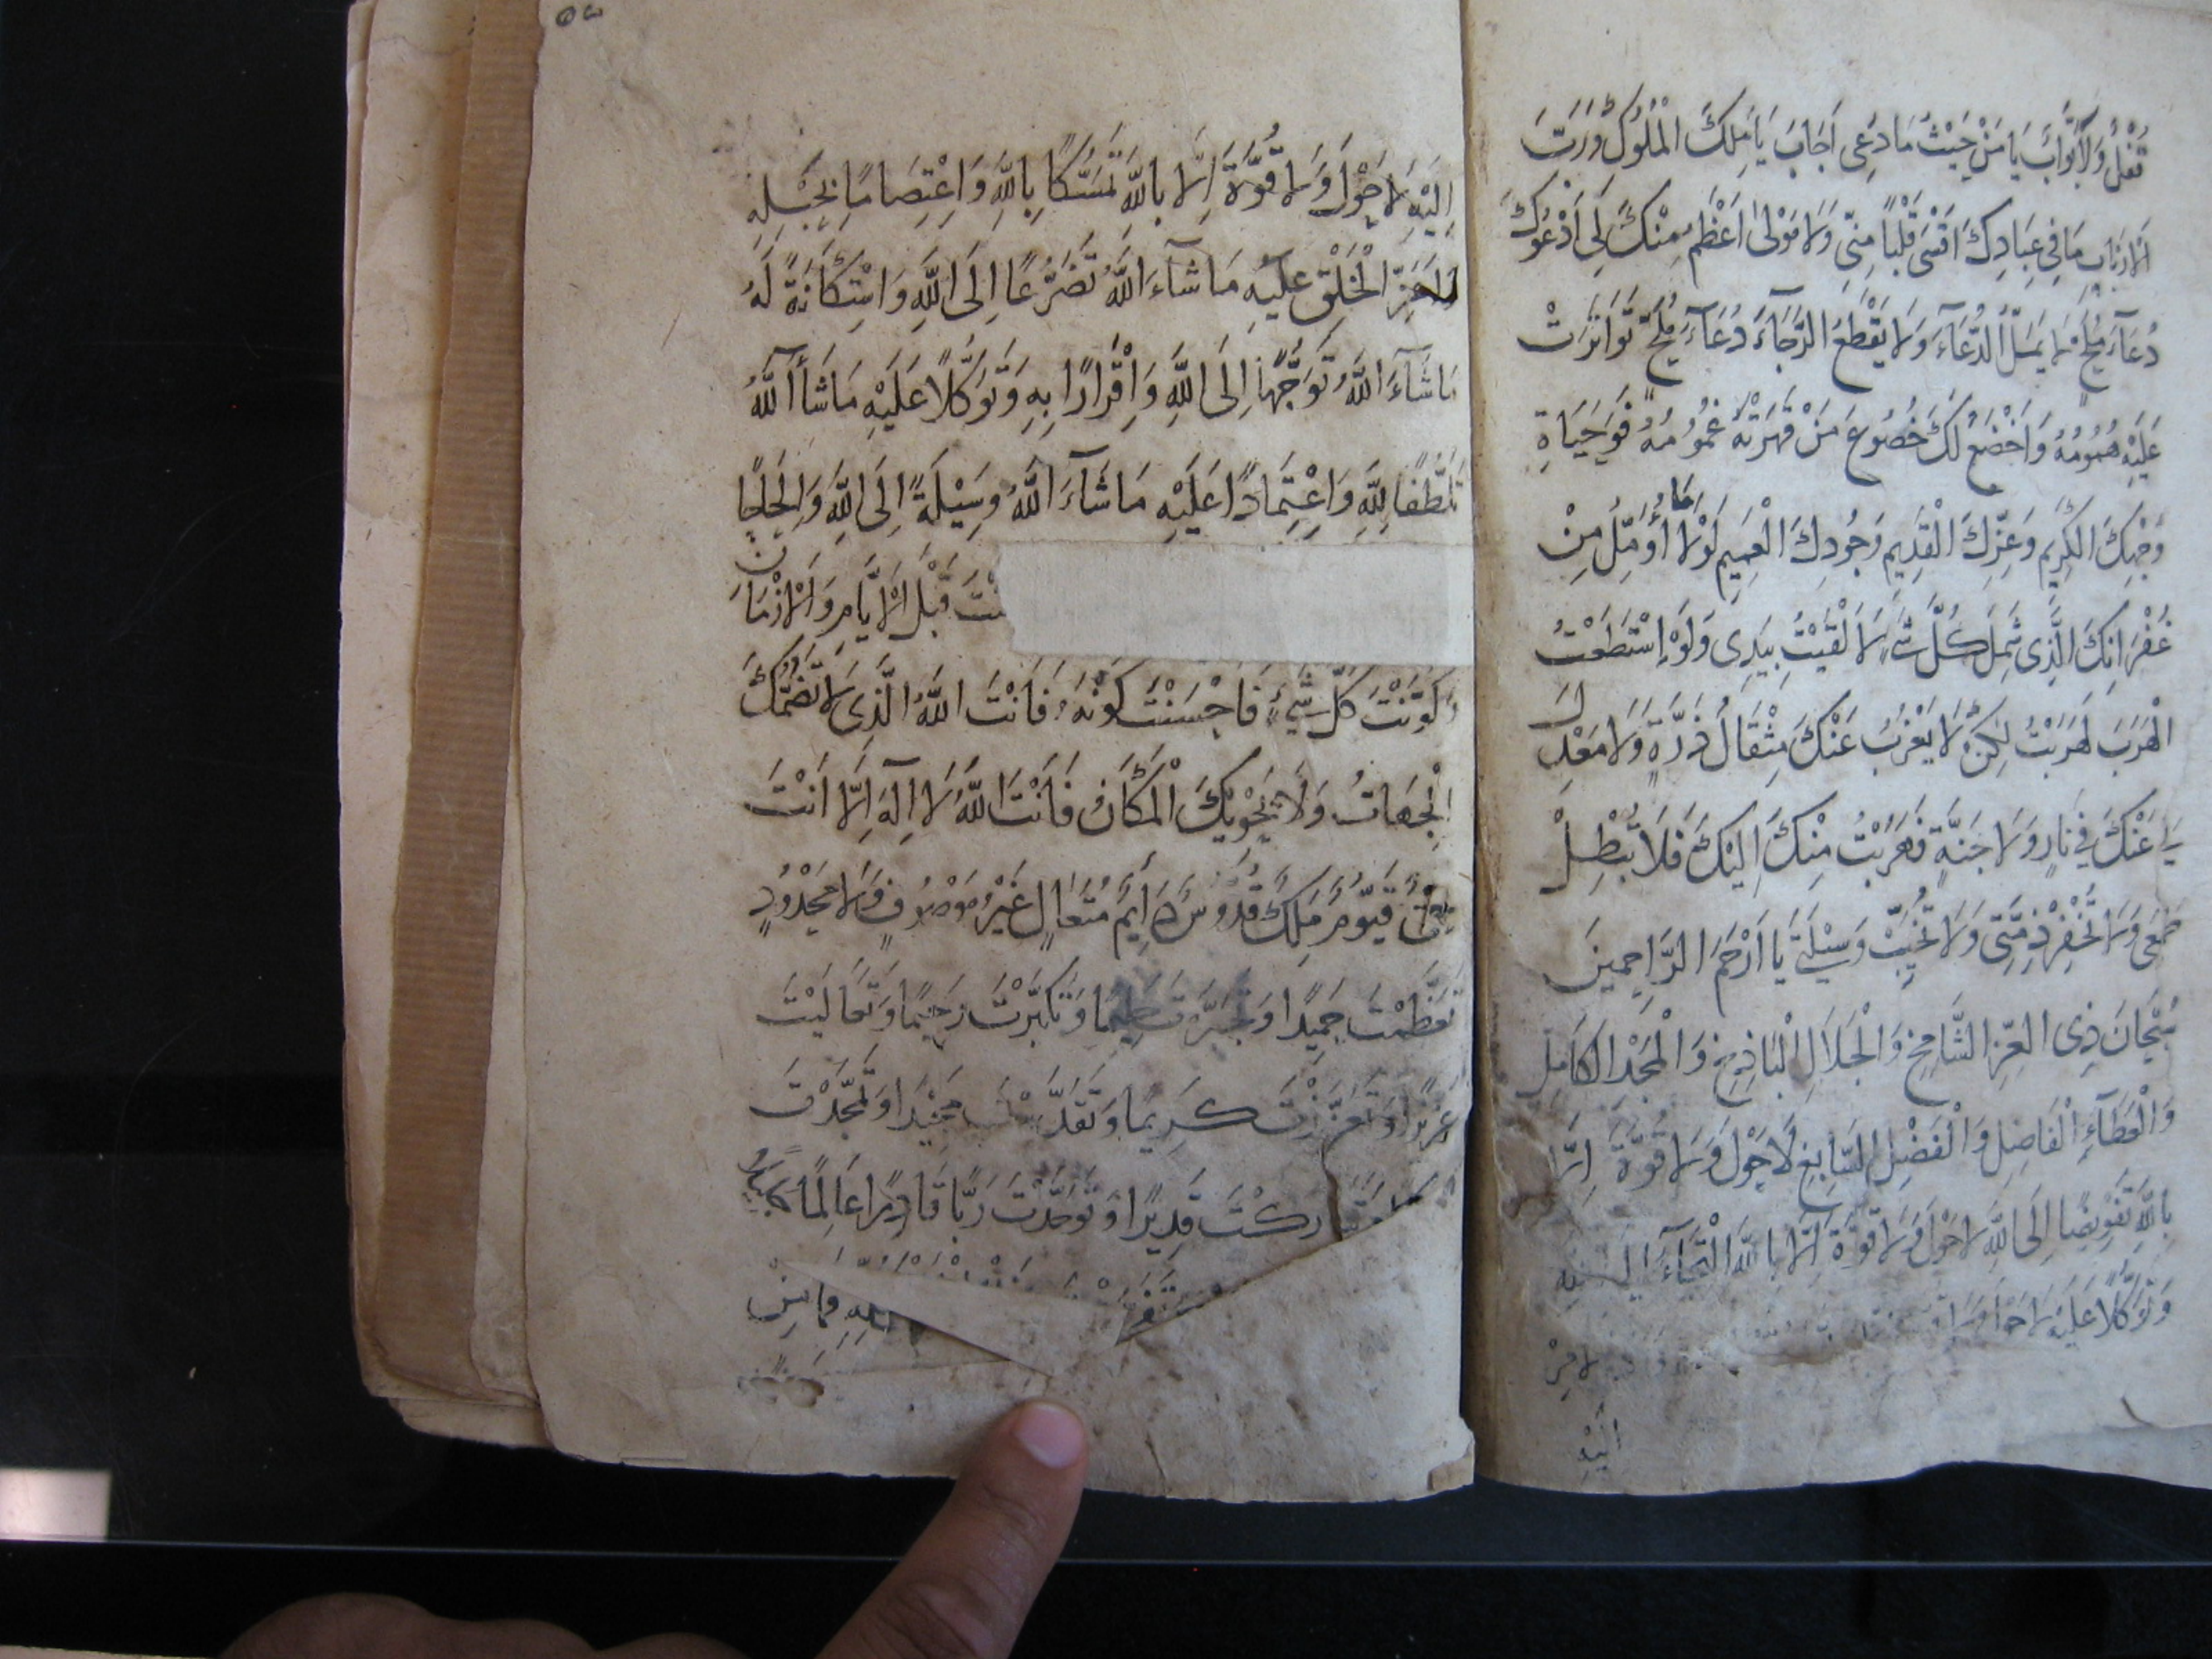 تُقْفَلُ وَلَا بَوَّابَ يَا مَنْ حَيْثُ مَا دُعِى اَجَابَ يَا مَلِكَ الْمُلُوكِ وَرَبَّ
الْاَرْبَابِ مَا فِى عِبَادِكَ اَقْسَى قَلْبًا مِنِّى وَلَا مَوْلًى اَعْظَمُ مِنْكَ لِى اَدْعُوكَ
دُعَآءَ مُلِحٍّ لَا يَمَلُّ الدُّعَآءَ وَلَا يَقْطَعُ الرَّجَآءَ دُعَآءَ مُلِحٍّ تَوَاتَرَتْ
عَلَيْهِ هُمُومُهُ وَاَخْضَعُ لَكَ خُضُوعَ مَنْ قَهَرَتْهُ غُمُومُهُ فَوَحَيَاةِ
وَجْهِكَ الْكَرِيمِ وَعِزِّكَ الْقَدِيمِ وَجُودِكَ الْعَمِيمِ لَوْلَا مَا اُوَمِّلُ مِنْ
غُفْرَانِكَ الَّذِى شَمِلَ كُلَّ شَىْءٍ لَاَلْقَيْتُ بِيَدِى وَلَوْ اسْتَطَعْتُ
الْهَرَبَ لَهَرَبْتُ لَكِنْ لَا يَعْزُبُ عَنْكَ مِثْقَالُ ذَرَّةٍ وَلَا مَعْدِلَ
لِى عَنْكَ فِى نَارٍ وَلَا جَنَّةٍ فَهَرَبْتُ مِنْكَ اِلَيْكَ فَلَا تُبْطِلْ
طَمَعِى وَلَا تُخْفِرْ ذِمَّتِى وَلَا تُخَيِّبْ وَسِيْلَتِى يَا اَرْحَمَ الرَّاحِمِينَ
سُبْحَانَ ذِى الْعِزِّ الشَّامِخِ وَالْجَلَالِ الْبَاذِخِ وَالْمَجْدِ الْكَامِلِ
وَالْعَطَآءِ الْفَاضِلِ وَالْفَضْلِ السَّابِغِ لَا حَوْلَ وَلَا قُوَّةَ اِلَّا
بِاللهِ تَفْوِيضًا اِلَى اللهِ لَا حَوْلَ وَلَا قُوَّةَ اِلَّا بِاللهِ الْتِجَآءً اِلَيْهِ
وَتَوَكُّلًا عَلَيْهِ لَا حَوْلَ وَلَا
اِلَيْهِ
اِلَيْهِ لَا حَوْلَ وَلَا قُوَّةَ اِلَّا بِاللهِ تَمَسُّكًا بِاللهِ وَاعْتِصَامًا بِحَبْلِهِ
الْخَلْقِ عَلَيْهِ مَا شَآءَ اللهُ تَضَرُّعًا اِلَى اللهِ وَاسْتِكَانَةً لَهُ
مَا شَآءَ اللهُ تَوَجُّهًا اِلَى اللهِ وَاِقْرَارًا بِهِ وَتَوَكُّلًا عَلَيْهِ مَا شَآءَ اللهُ
تَلَطُّفًا لِلّهِ وَاعْتِمَادًا عَلَيْهِ مَا شَآءَ اللهُ وَسِيْلَةً اِلَى اللهِ وَاِلْحَاحًا
قَبْلَ الْاَيَّامِ وَالْاَزْمَانِ
وَكَوَّنْتَ كُلَّ شَىْءٍ فَاَحْسَنْتَ كَوْنَهُ فَاَنْتَ اللهُ الَّذِى لَا تَضُمُّكَ
الْجِهَاتُ وَلَا يَحْوِيْكَ الْمَكَانُ فَاَنْتَ اللهُ لَا اِلَهَ اِلَّا اَنْتَ
قَيُّومٌ مَلِكٌ قُدُّوسٌ دَائِمٌ مُتَعَالٍ غَيْرُ مَوْصُوفٍ وَلَا مَحْدُودٍ
تَعَظَّمْتَ حَمِيدًا وَتَجَبَّرْتَ حَلِيمًا وَتَكَبَّرْتَ رَحِيمًا وَتَعَالَيْتَ
عَزِيزًا وَتَعَزَّزْتَ كَرِيمًا وَتَقَدَّسْتَ مَجِيْدًا وَتَمَجَّدْتَ
قَدِيرًا وَتَوَحَّدْتَ رَبًّا قَادِرًا عَالِمًا